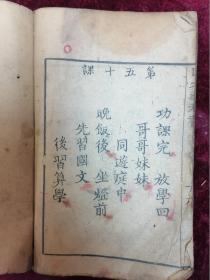 第五十課
功課完 放學回
哥哥妹妹
同遊庭中
晚飯後 坐燈前
先習國文
後習算學